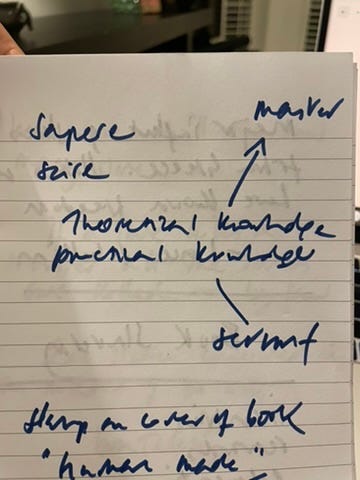 master
Sapere
scire
Theoretical knowledge
practical knowledge
servant
stamp on cover of book
"human made"